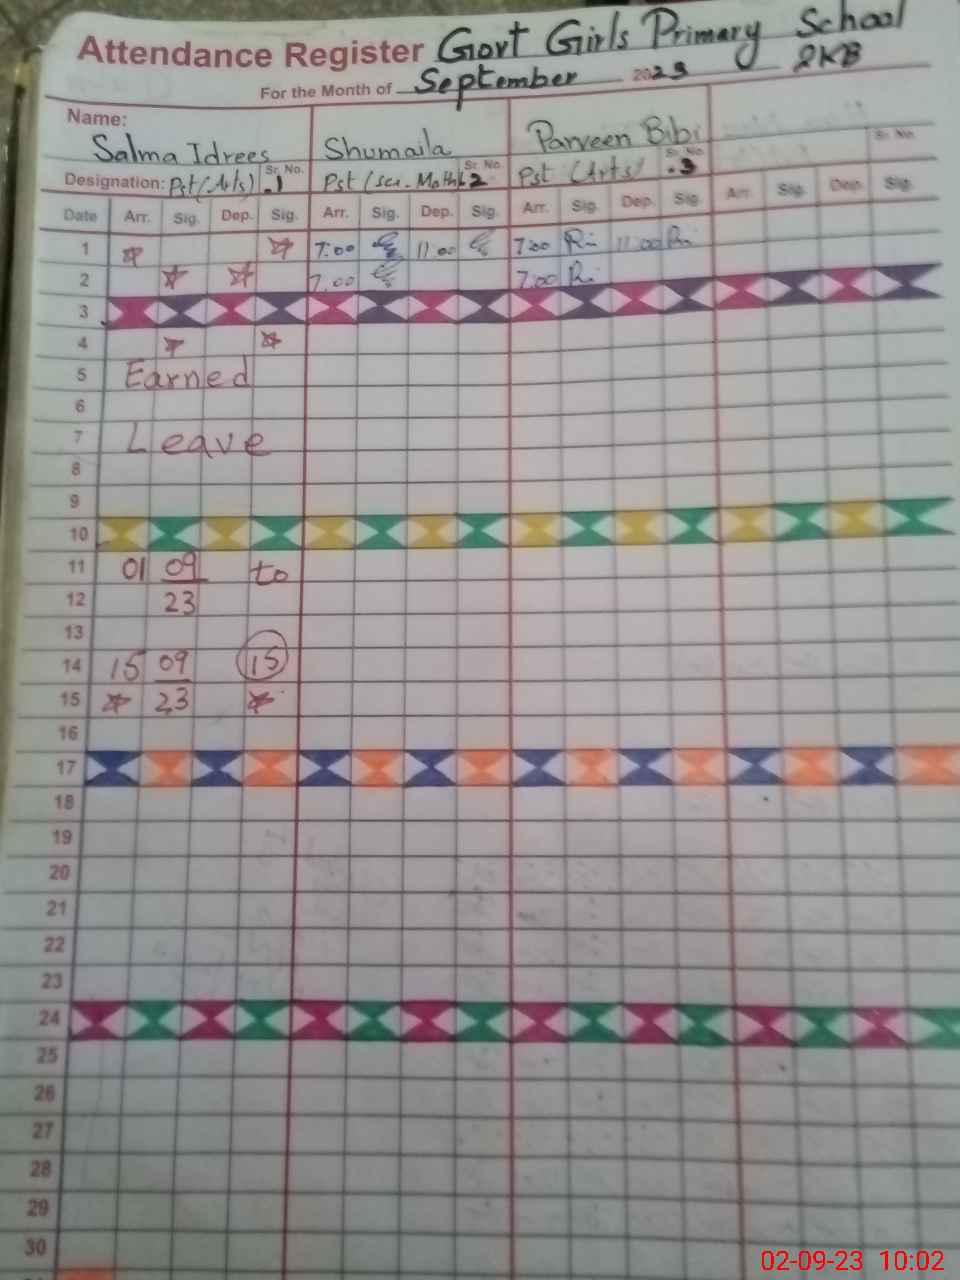 Attendance Register Govt Girls Primary School
For the Month of September 2023 2KB
Name:
Salma Idrees Shumaila Parveen Bibi
Sr. No. Sr. No. Sr. No. Sr. No.
Designation: Pst (Arts) .1 Pst (Sci. Math) .2 Pst (Arts) .3
Date Arr. Sig. Dep. Sig. Arr. Sig. Dep. Sig. Arr. Sig. Dep. Sig. Arr. Sig. Dep. Sig.
1 7:00 11:00 7:00 11:00
2 7:00 7:00
3
4
5 Earned
6
7 Leave
8
9
10
11 01 09 to
12 23
13
14 15 09 15
15 23
16
17
18
19
20
21
22
23
24
25
26
27
28
29
30
02-09-23 10:02